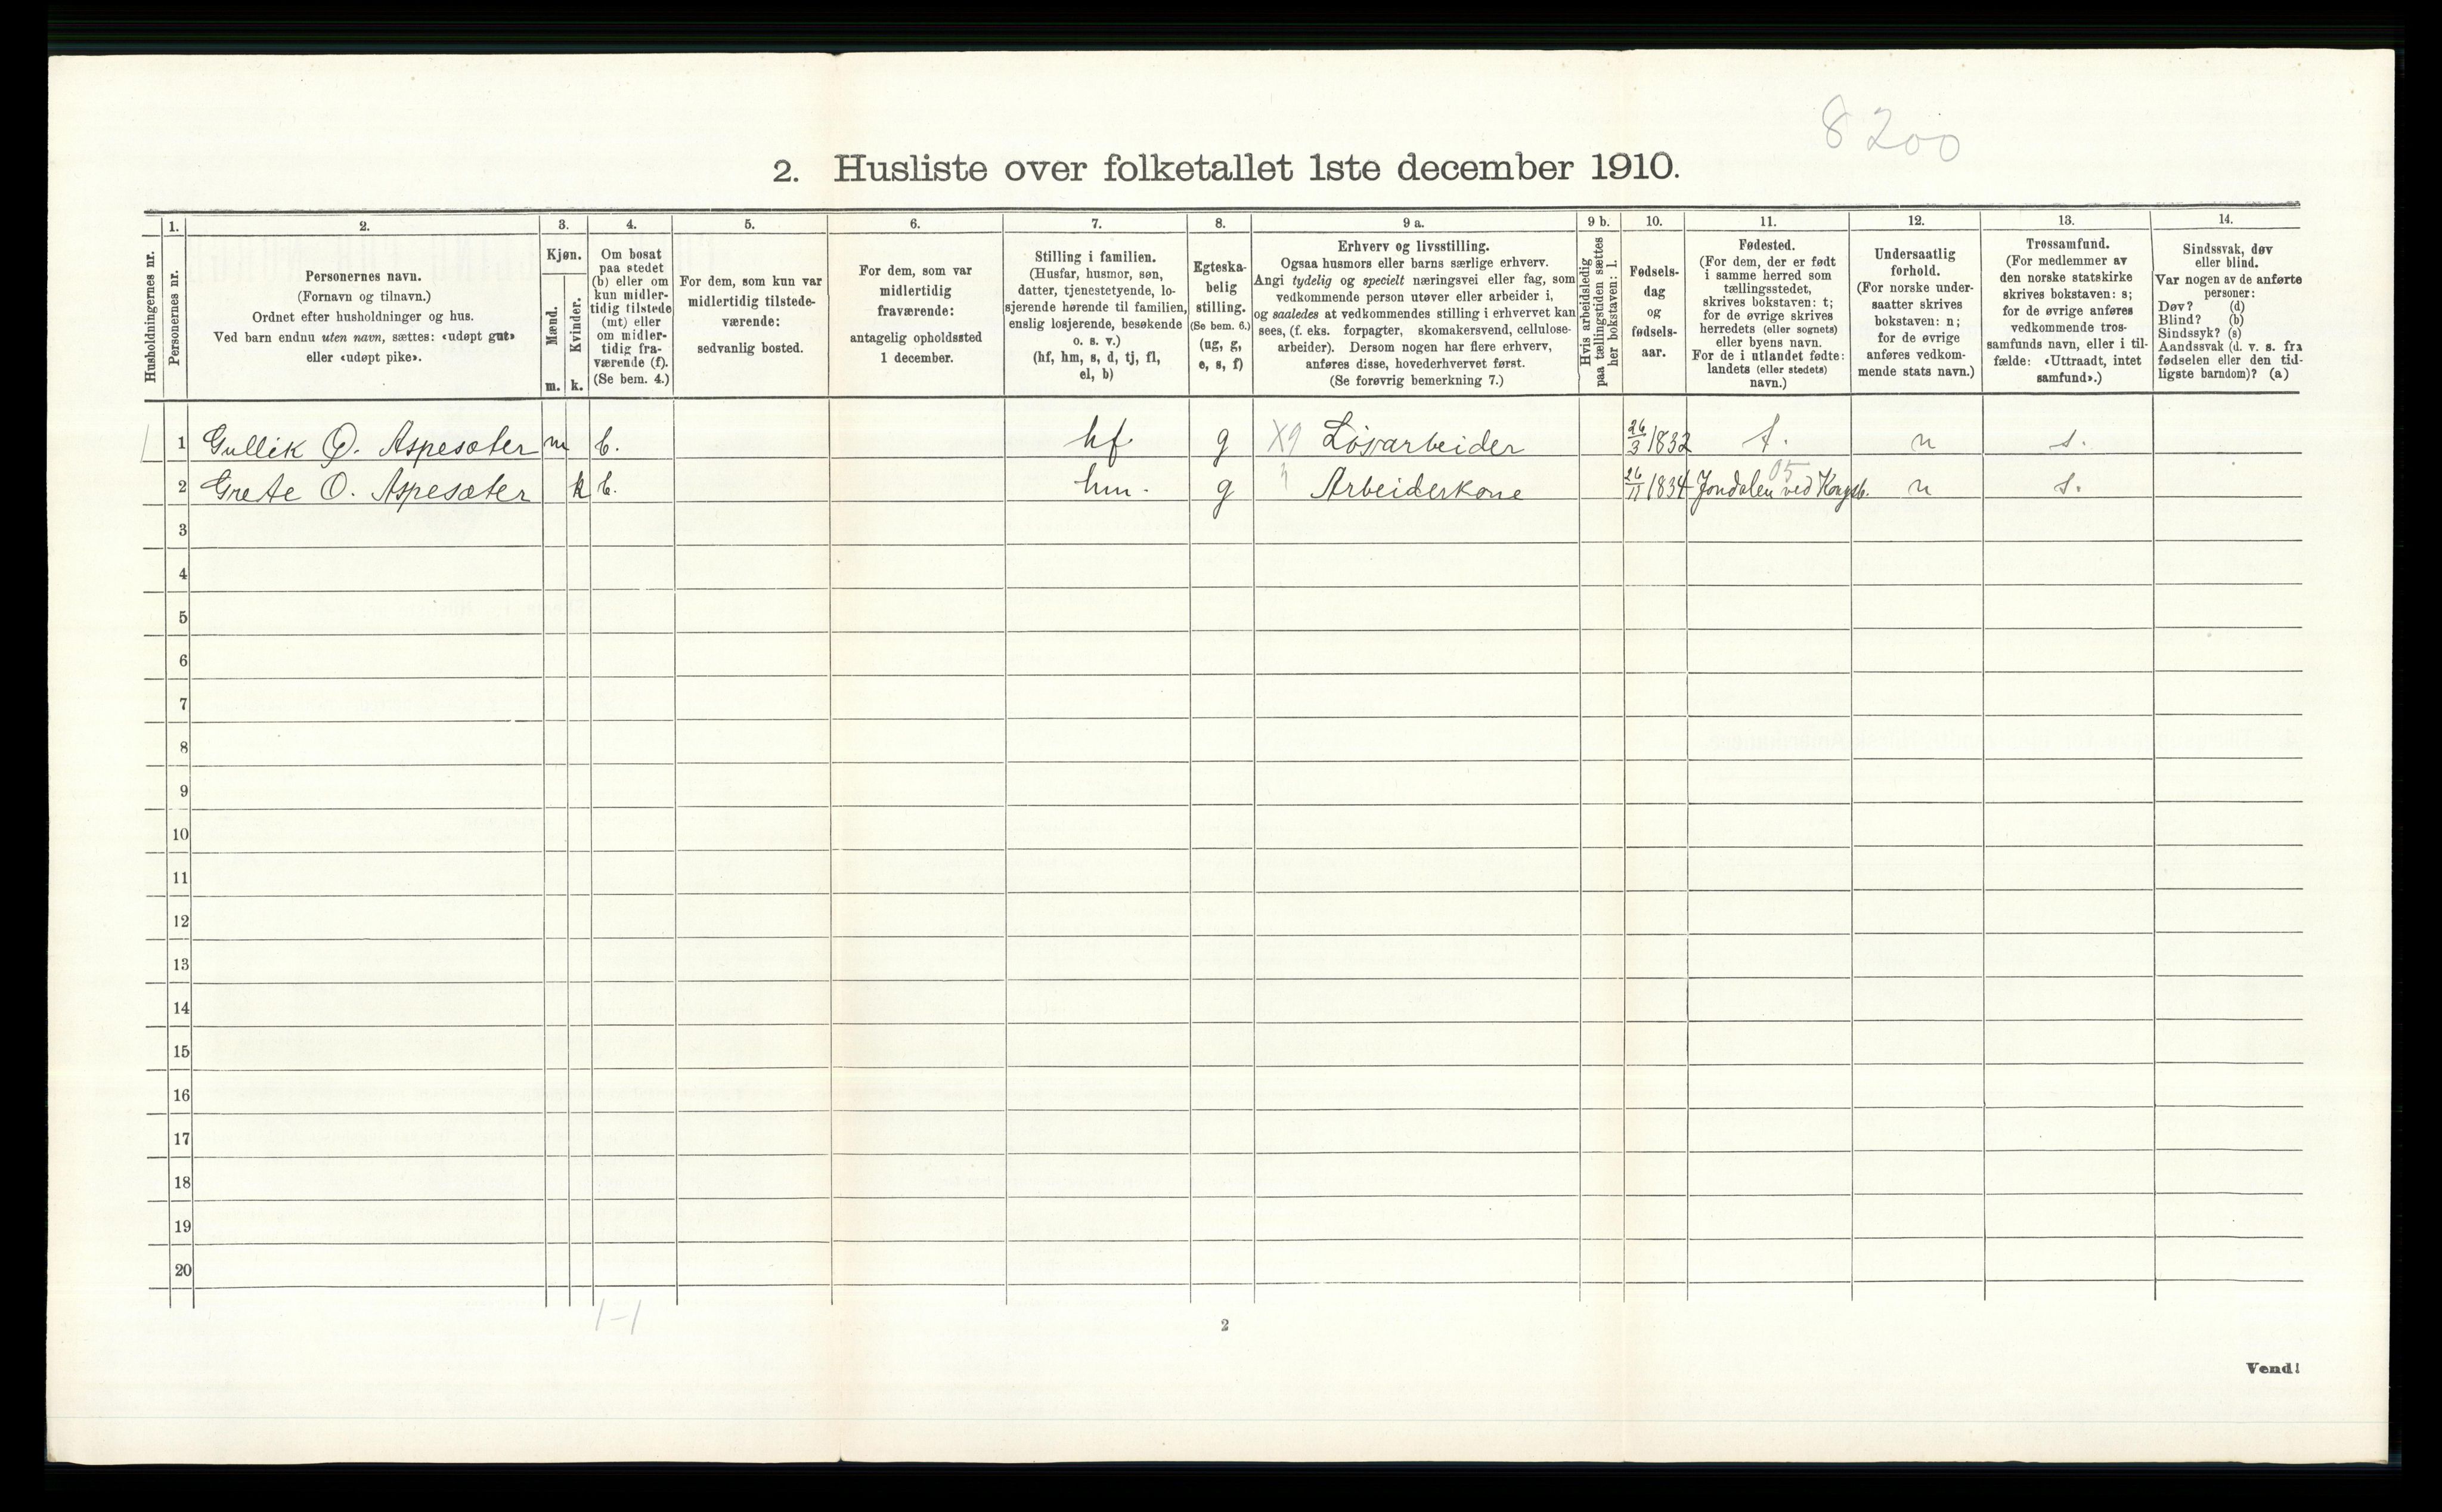 8200
2. Husliste over folketallet 1ste december 1910.
Husholdningernes nr.
1.
Personernes nr.
2.
Personernes navn.
(Fornavn og tilnavn.)
Ordnet efter husholdninger og hus.
Ved barn endnu uten navn, sættes: «udøpt gut»
eller «udøpt pike».
3.
Kjøn.
Mænd.
m.
Kvinder.
k.
4.
Om bosat
paa stedet
(b) eller om
kun midler-
tidig tilstede
(mt) eller
om midler-
tidig fra-
værende (f).
(Se bem. 4.)
5.
For dem, som kun var
midlertidig tilstede-
værende:
sedvanlig bosted.
6.
For dem, som var
midlertidig
fraværende:
antagelig opholdssted
1 december.
7.
Stilling i familien.
(Husfar, husmor, søn,
datter, tjenestetyende, lo-
sjerende hørende til familien,
enslig losjerende, besøkende
o. s. v.)
(hf, hm, s, d, tj, fl,
el, b)
8.
Egteska-
belig
stilling.
(Se bem. 6.)
(ug, g,
e, s, f)
9 a.
Erhverv og livsstilling.
Ogsaa husmors eller barns særlige erhverv.
Angi tydelig og specielt næringsvei eller fag, som
vedkommende person utøver eller arbeider i,
og saaledes at vedkommendes stilling i erhvervet kan
sees, (f. eks. forpagter, skomakersvend, cellulose-
arbeider). Dersom nogen har flere erhverv,
anføres disse, hovederhvervet først.
(Se forøvrig bemerkning 7.)
9 b.
Hvis arbeidsledig
paa tællingstiden sættes
her bokstaven: l.
10.
Fødsels-
dag
og
fødsels-
aar.
11.
Fødested.
(For dem, der er født
i samme herred som
tællingsstedet,
skrives bokstaven: t;
for de øvrige skrives
herredets (eller sognets)
eller byens navn.
For de i utlandet fødte:
landets (eller stedets)
navn.)
12.
Undersaatlig
forhold.
(For norske under-
saatter skrives
bokstaven: n;
for de øvrige
anføres vedkom-
mende stats navn.)
13.
Trossamfund.
(For medlemmer av
den norske statskirke
skrives bokstaven: s;
for de øvrige anføres
vedkommende tros-
samfunds navn, eller i til-
fælde: «Uttraadt, intet
samfund».)
14.
Sindssvak, døv
eller blind.
Var nogen av de anførte
personer:
Døv? (d)
Blind? (b)
Sindssyk? (s)
Aandssvak (d. v. s. fra
fødselen eller den tid-
ligste barndom)? (a)
1 Gullik O. Aspesæter m b. hf. g X9 Løsarbeider 26/3 1832 t. n s.
2 Grete O. Aspesæter k b. hm. g " Arbeiderkone 26/11 1834 Jondalen ved Kongsb. 05 n s.
3
4
5
6
7
8
9
10
11
12
13
14
15
16
17
18
19
20
1-1
2
Vend!